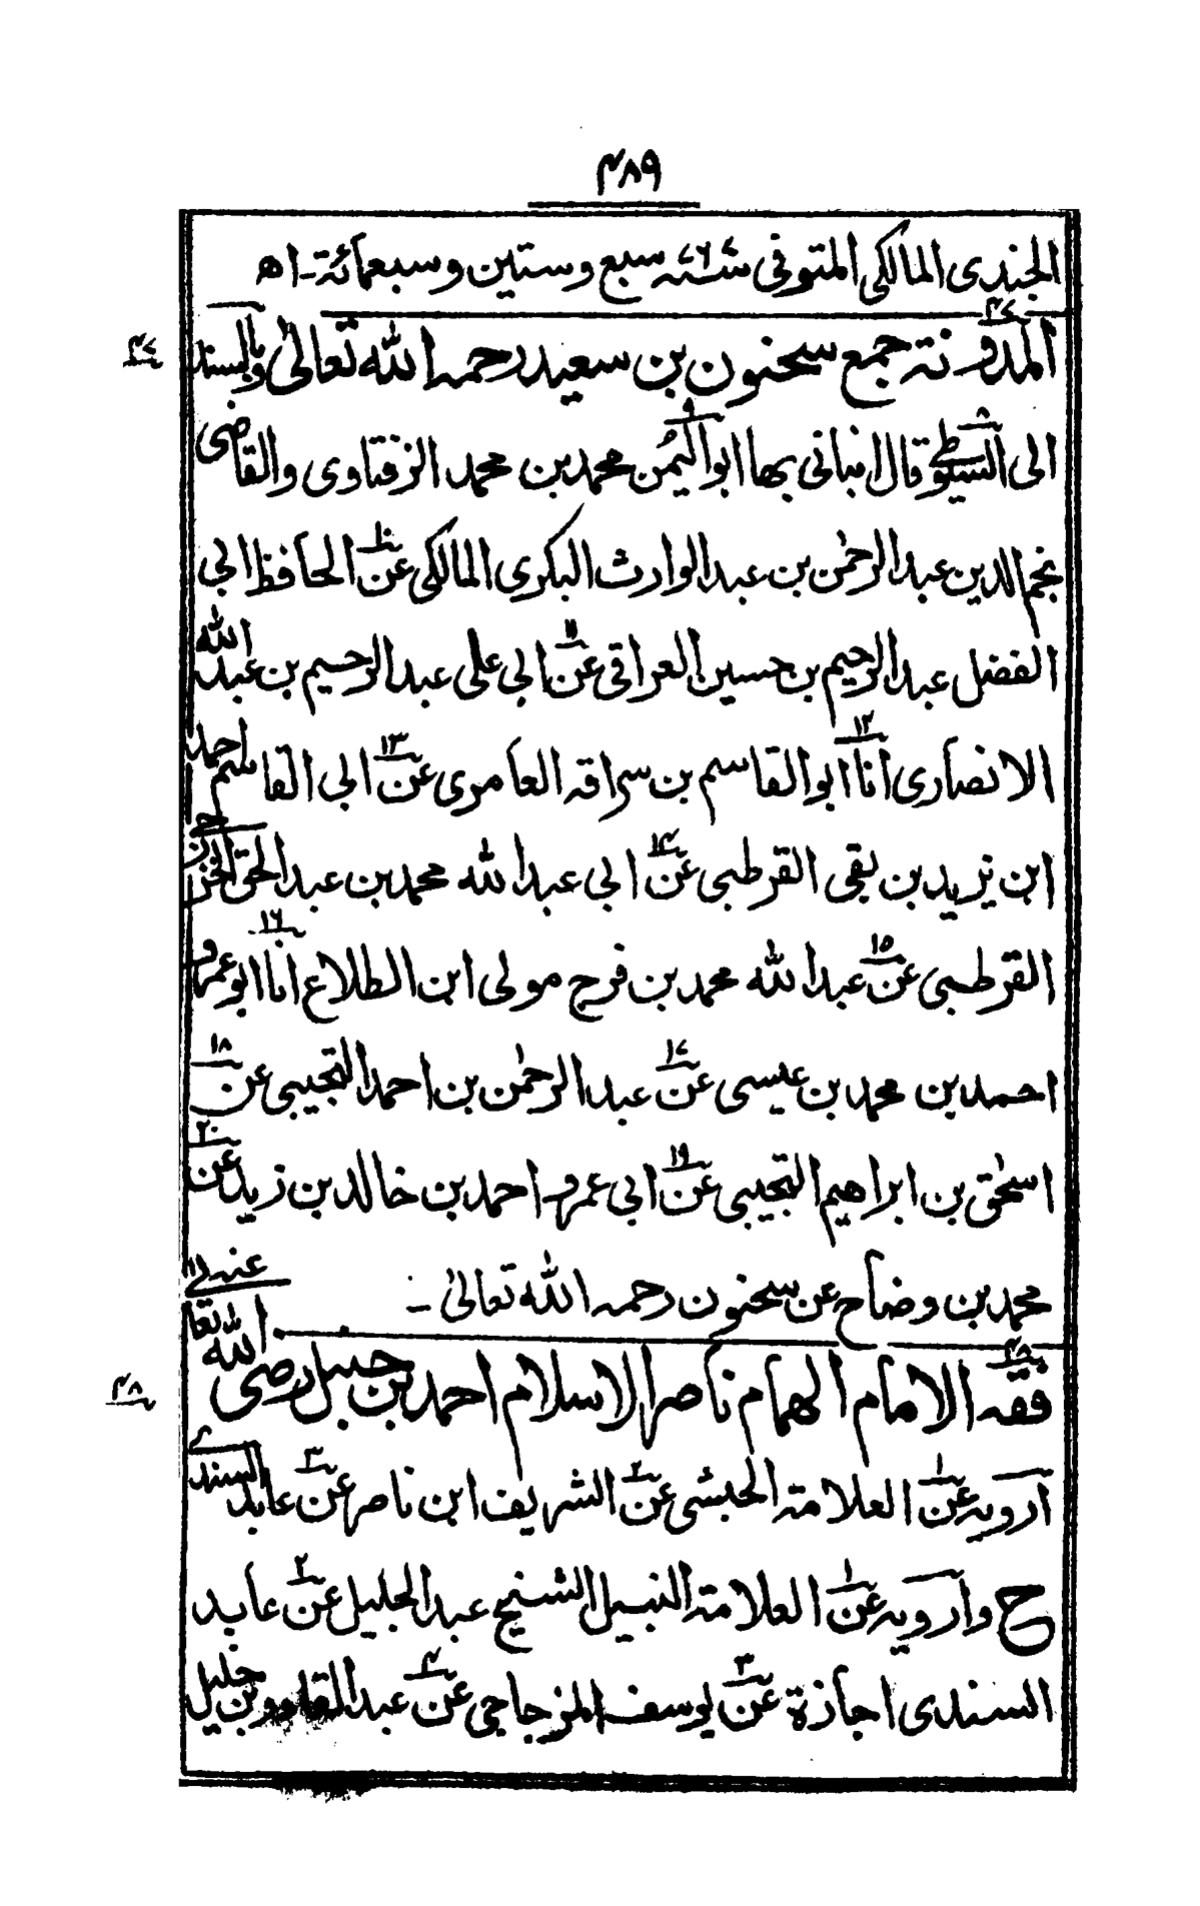 ٤٨٩
الجندى المالكى المتوفى سنة ٧٦٧ سبع وستين وسبعمائة - اه
٤٧
المدونة جمع سحنون بن سعيد رحمه الله تعالىٰ وبالسند
٤٧
الى السيوطى ٨ قال انبانى بها ابو اليُمن ٩ محمد بن محمد الزفتاوى والقاضى
نجم الدين عبد الرحمٰن بن عبد الوارث البكرى المالكى عن ١٠ الحافظ ابى
الفضل عبد الرحيم بن حسين العراقى عن ١١ ابى على عبد الرحيم بن عبد الله
الانصارى انا ١٢ ابو القاسم بن سراقه العامرى عن ١٣ ابى القاسم احمد
ابن يزيد بن بقى القرطبى عن ١٤ ابى عبد الله محمد بن عبد الحق الخزرجى
القرطبى عن ١٥ عبد الله محمد بن فرج مولى ابن الطلاع انا ١٦ ابو عمرو
احمد بن محمد بن عيسى عن ١٧ عبد الرحمٰن بن احمد التجيبى عن ١٨
اسحٰق بن ابراهيم التجيبى عن ١٩ ابى عمرو احمد بن خالد بن زيد عن ٢٠
محمد بن وضاح عن سحنون رحمه الله تعالىٰ -
٤٨
فقه الامام الهمام ناصر الاسلام احمد بن حنبل رضى الله تعالى عنه
٤٨
ارويه عن ١ العلامة الحبشى عن ٢ الشريف ابن ناصر عن ٣ عابد السندى
ح وارويه عن ١ العلامة النبيل الشيخ عبد الجليل عن ٢ عابد
السندى اجازة عن ٣ يوسف المزجاجى عن ٤ عبد القادر بن خليل